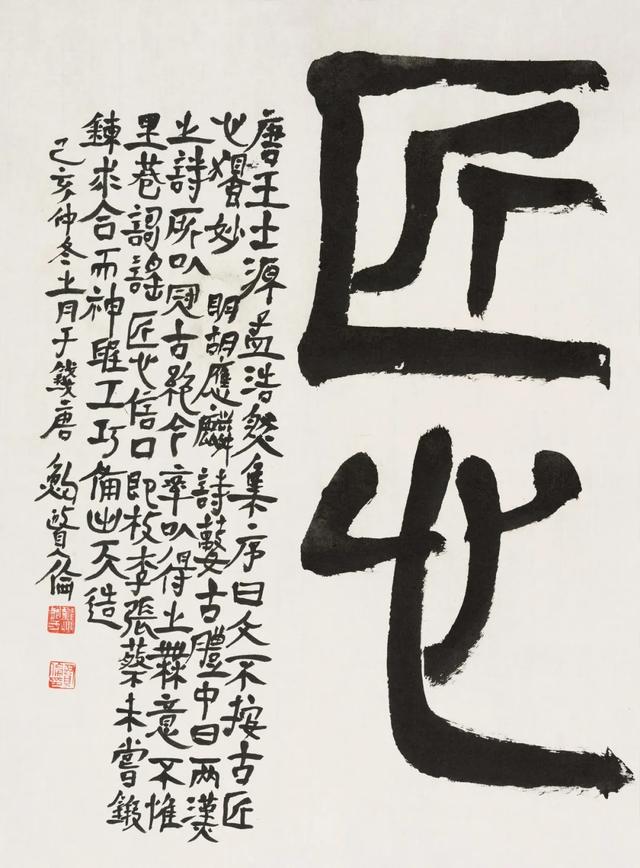 匠心
唐王士源孟浩然集序曰文不按古匠
心獨妙 明胡應麟詩藪古體中曰兩漢
之詩所以冠古絕今率以得之無意不惟
里巷謌謠匠心信口即枚李張蔡未嘗鍛
鍊求合而神聖工巧備出天造
己亥仲冬之月于錢唐 鮑賢倫